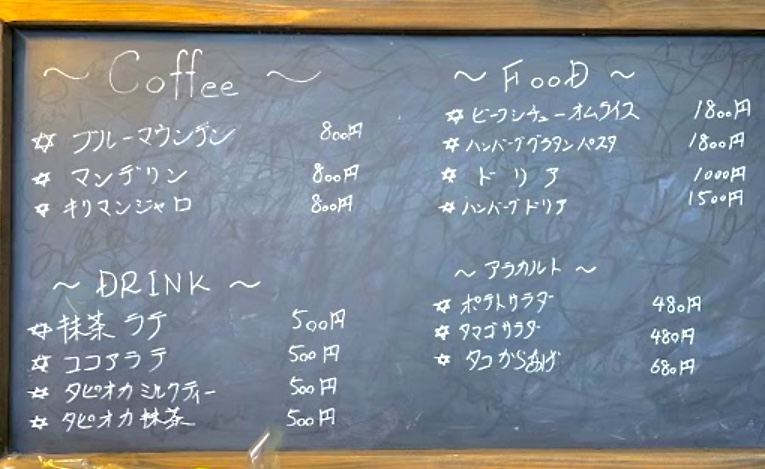 ～ Coffee ～
☆ ブルーマウンテン 800円
☆ マンデリン 800円
☆ キリマンジャロ 800円
～ DRINK ～
☆ 抹茶ラテ 500円
☆ ココアラテ 500円
☆ タピオカミルクティー 500円
☆ タピオカ抹茶 500円
～ FOOD ～
☆ ビーフシチューオムライス 1800円
☆ ハンバーググラタンパスタ 1800円
☆ ドリア 1000円
☆ ハンバーグドリア 1500円
～ アラカルト ～
☆ ポテトサラダー 480円
☆ タマゴサラダー 480円
☆ タコからあげ 680円